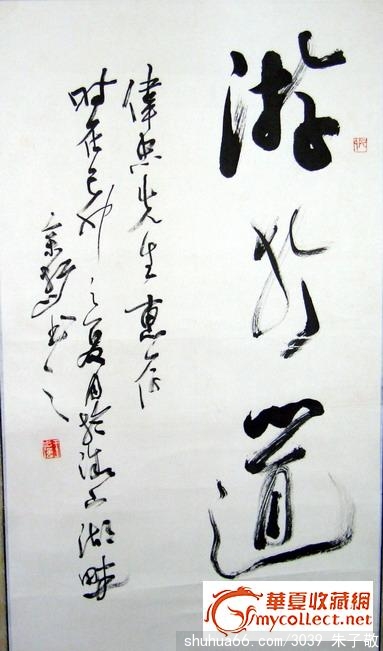 游於道
偉先生惠存
時在己卯之夏月於山湖畔
書之
華夏收藏網
mycollect.net
shuhua66.com/3039 朱子敬